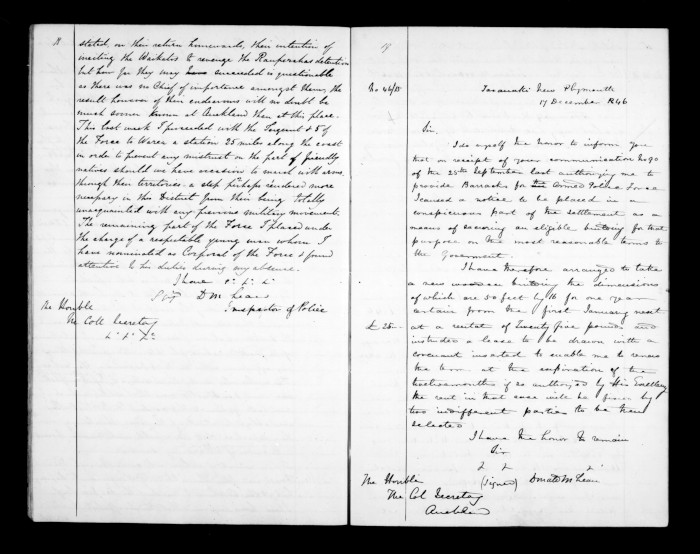 18
stated, on their return homewards, their intention of
meeting the Waikatos to revenge the Rauperahas detention
but how far they may have succeeded is questionable
as there was no Chief of importance amongst them, the
result however of their endeavours will no doubt be
much sooner known at Auckland than at this place.
This last week I proceeded with the Sergeant & 5 of
the Force to Warea a station 25 miles along the coast
in order to prevent any mistrust on the part of friendly
natives should we have occasion to march with arms
through their territories, a step perhaps rendered more
necessary in this District from their being totally
unacquainted with any previous military movements.
The remaining part of the Force I placed under
the charge of a respectable young man whom I
have nominated as Corporal of the Force & found
attentive to his duties during my absence.
I have &c &c &c
D M Lean
Inspector of Police
The Honble
The Coll Secretary
&c &c &c
19
No 46/18 Taranaki New Plymouth
17 December 1846
Sir,
I do myself the honor to inform you
that on receipt of your communication No 90
of the 25th September last authorizing me to
provide Barracks for the Armed Police Force
I caused a notice to be placed in a
conspicuous part of the settlement as a
means of securing an eligible building for that
purpose on the most reasonable terms to
the Government.
I have therefore arranged to take
a new wooden building the dimensions
of which are 50 feet by 16 for one year
certain from the first January next
£ 25 at a rental of Twenty five pounds and
intended a lease to be drawn with a
covenant inserted to enable me to renew
the term at the expiration of the
twelvemonths if so authorized by His Excellency
the rent in that case will be given by
two indifferent parties to be then
selected
I have the honor to remain
Sir
&c &c &c
(signed) Donald McLean
The Honble
The Col Secretary
Auckland